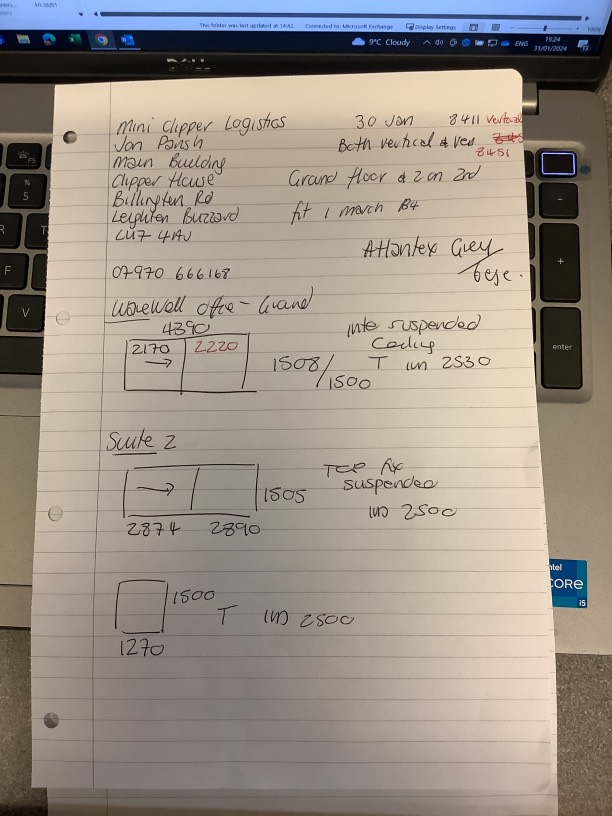 This folder was last updated at 14:42.
Connected to: Microsoft Exchange
Display Settings
100%
9°C Cloudy
ENG
15:24
31/01/2024
DELL
Mini Clipper Logistics
30 Jan
8411 vertical
Jan
Both vertical &
8451
Main Building
Clipper House
Ground floor & 2 on 2nd
Billington Rd
Leighton Buzzard
fit 1 march
LU7 4AJ
Atlantex Grey
/Beige.
07970 666168
Office - Ground
4390
2170 → 2220
into suspended
Ceiling
1508/1500
T 2530
Suite 2
→
1505
Top fix
suspended
2500
2874 2890
1500
T 2500
1270
F5
%
5
R
T
F
V
-
+
enter
intel
CORE
i5